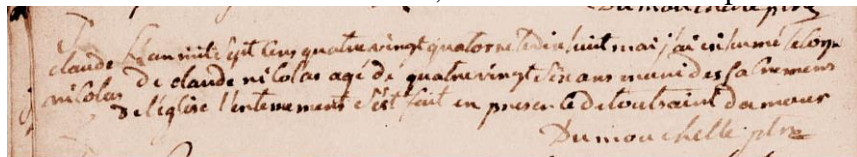 Dumouchelle ptre
S
claude L'an mil sept cens quatre vingt quatorze le dix huit mai j'ai inhumé le corp
nicolas de claude nicolas agé de quatre vingt dix ans muni des sacremens
de l'église l'enterrement s'est fait en presence de toussaint damour
Dumouchelle ptre